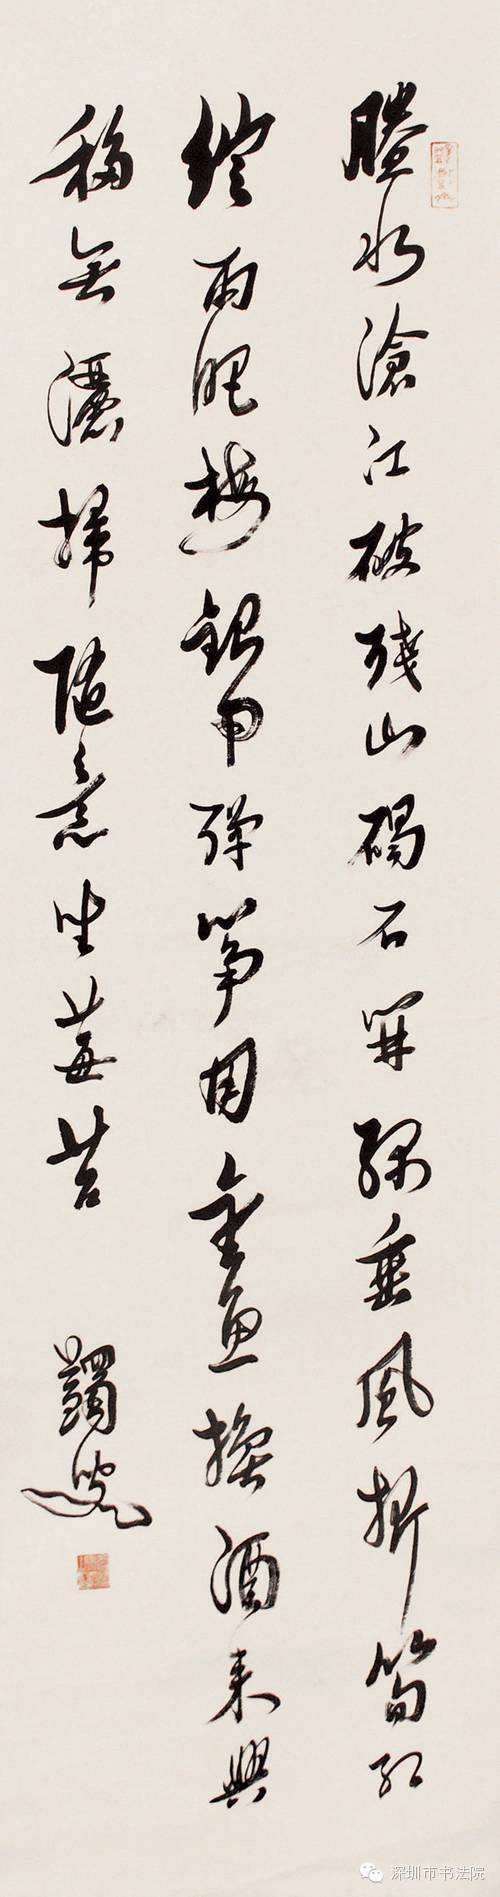 賸水滄江破殘山碣石開綠垂風折筍紅
綻雨肥梅銀甲彈箏用金魚換酒來興
移無灑掃隨意坐莓苔
蠲叟
深圳市书法院